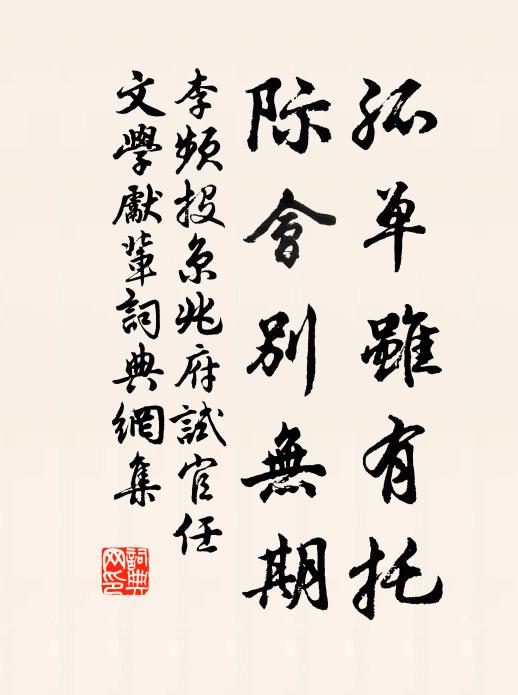 孤单雖有托
际會别無期
李頻投京兆府試官任
文學獻輩詞典網集
詞典网印